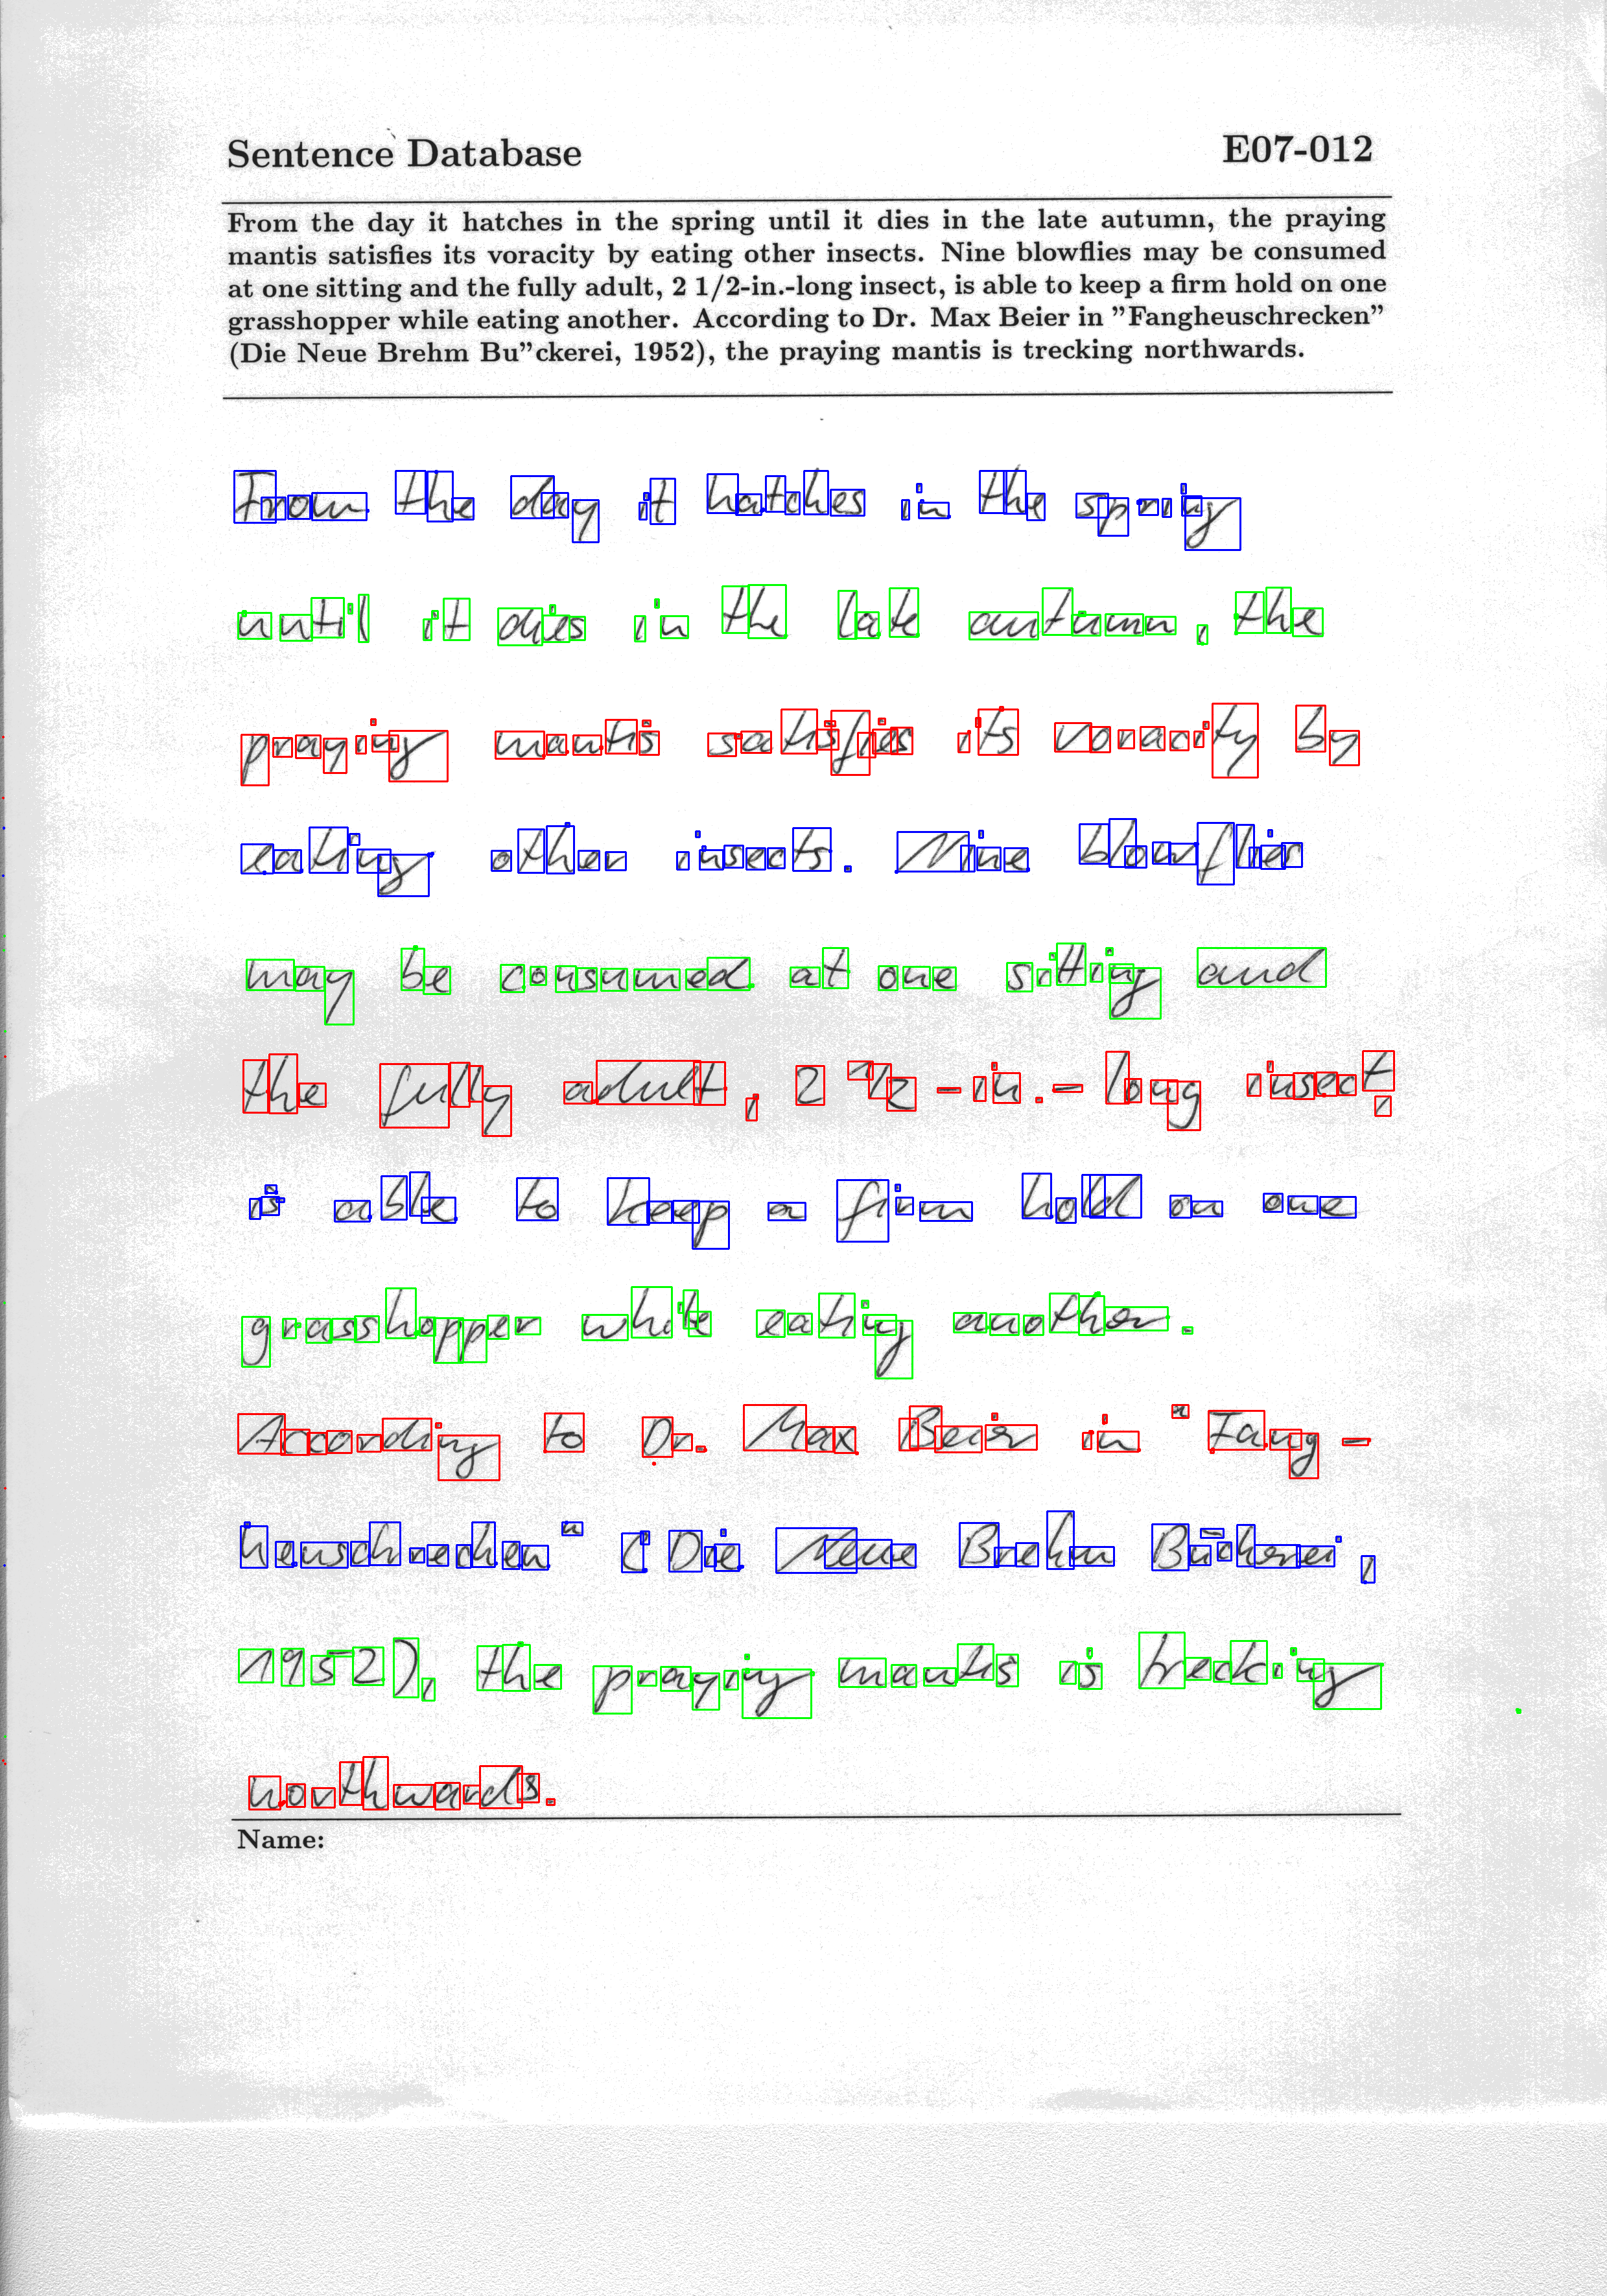 Sentence Database E07-012
From the day it hatches in the spring until it dies in the late autumn, the praying
mantis satisfies its voracity by eating other insects. Nine blowflies may be consumed
at one sitting and the fully adult, 2 1/2-in.-long insect, is able to keep a firm hold on one
grasshopper while eating another. According to Dr. Max Beier in "Fangheuschrecken"
(Die Neue Brehm Bu"ckerei, 1952), the praying mantis is trecking northwards.
From the day it hatches in the spring
until it dies in the late autumn, the
praying mantis satisfies its voracity by
eating other insects. Nine blowflies
may be consumed at one sitting and
the fully adult, 2 1/2 - in. - long insect,
is able to keep a firm hold on one
grasshopper while eating another.
According to Dr. Max Beier in "Fang-
heuschrecken" (Die Neue Brehm Bücherei,
1952), the praying mantis is trecking
northwards.
Name: